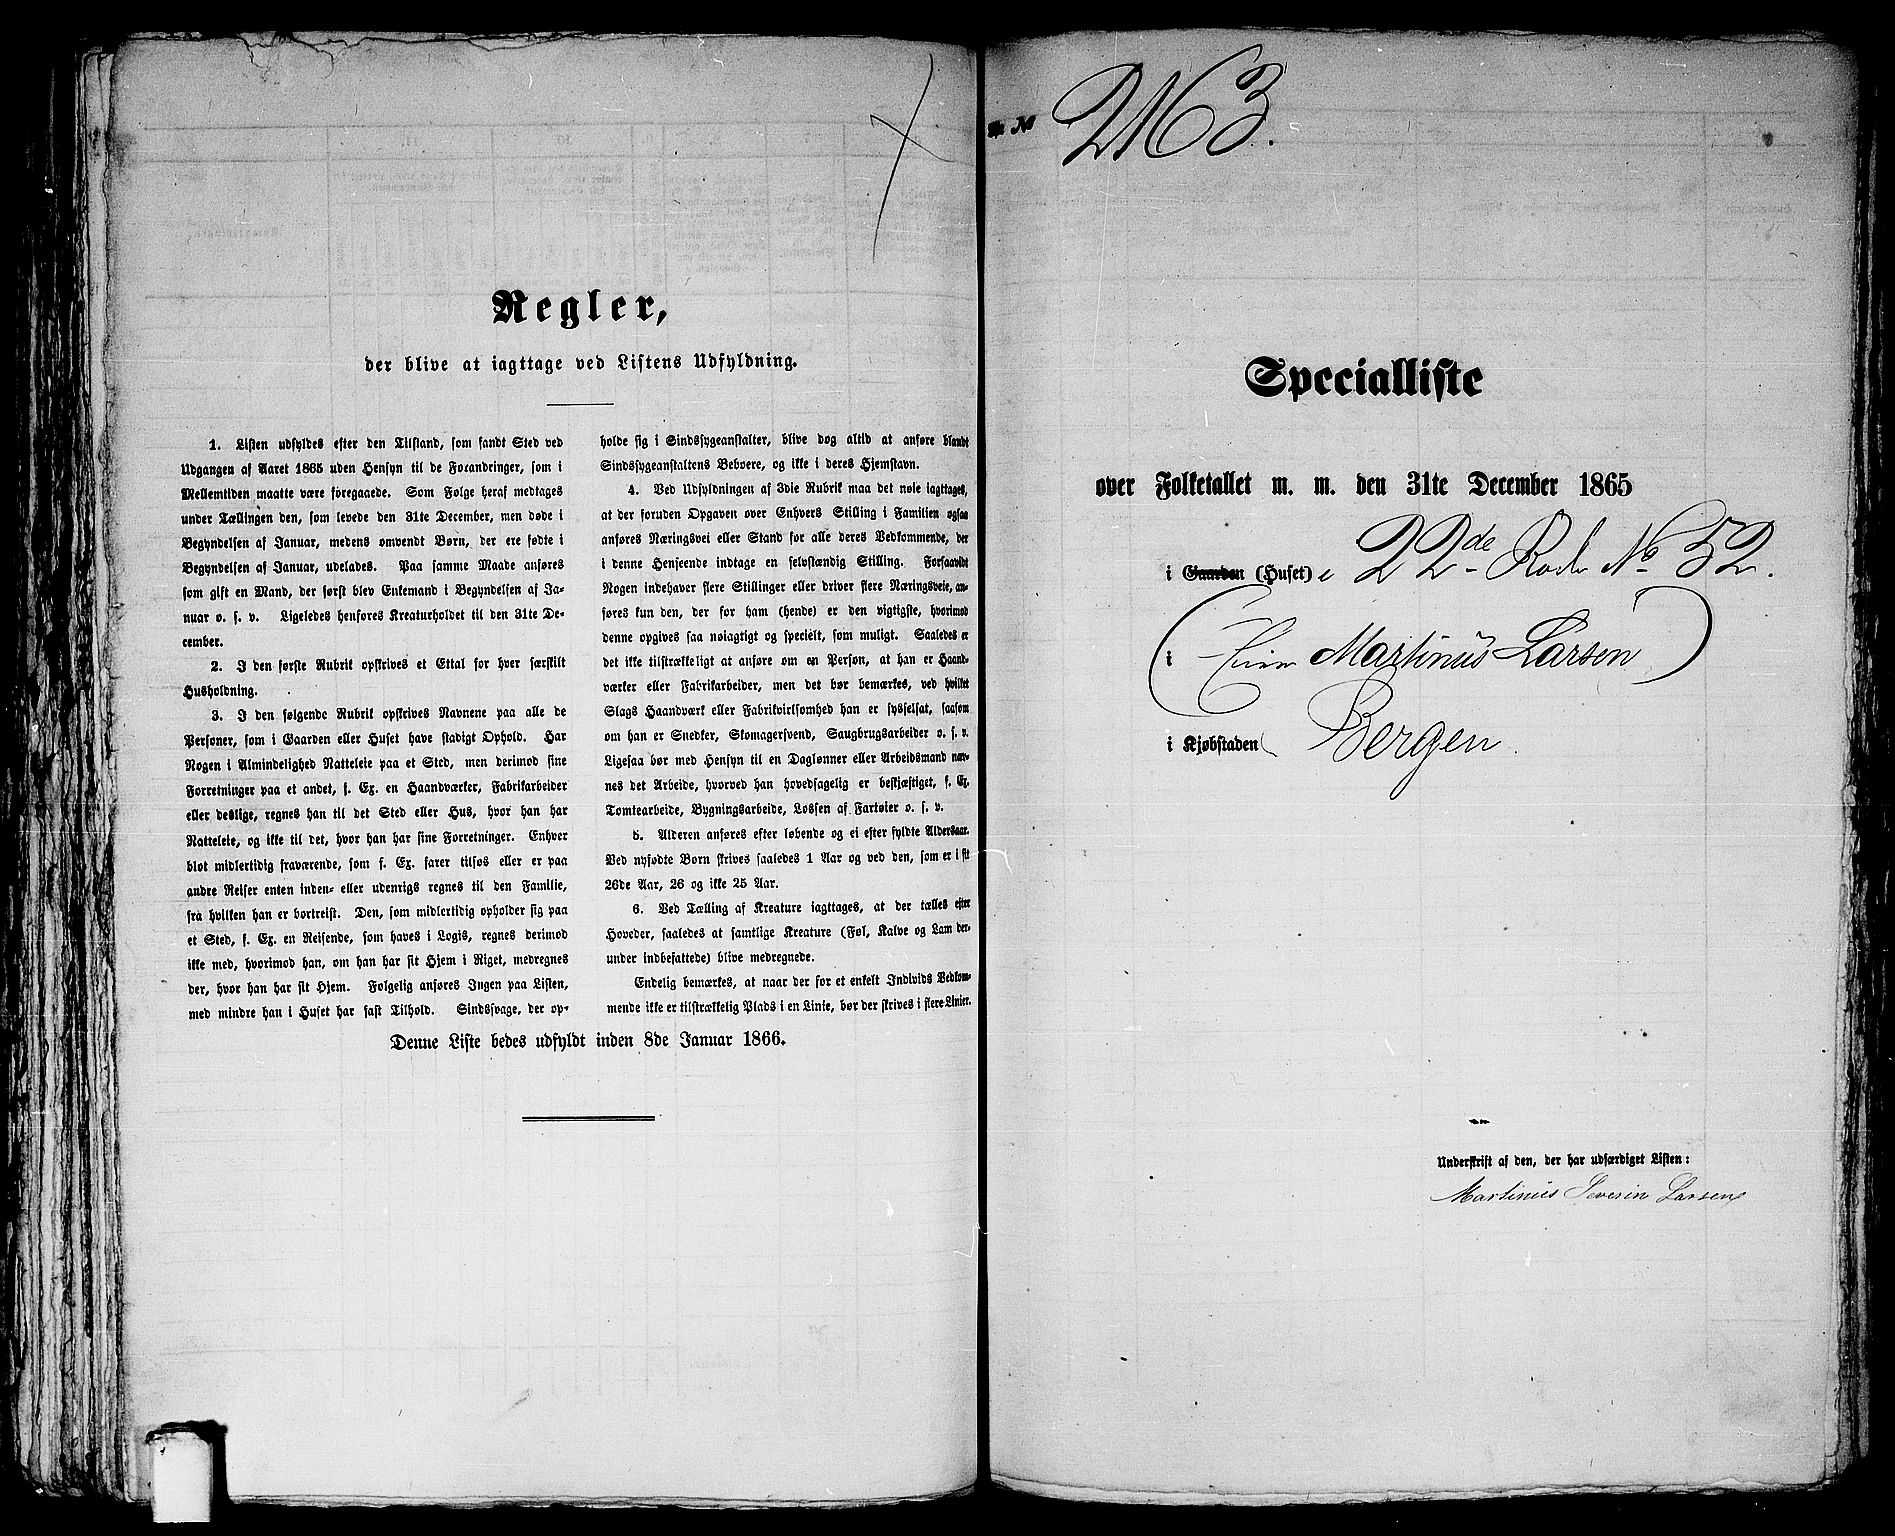 Regler,
der blive at iagttage ved Listens Udfyldning.
1. Listen udfyldes efter den Tilstand, som fandt Sted ved
Udgangen af Aaret 1865 uden Hensyn til de Forandringer, som i
Mellemtiden maatte være foregaaede. Som Følge heraf medtages
under Tællingen den, som levede den 31te December, men døde i
Begyndelsen af Januar, medens omvendt Børn, der ere fødte i
Begyndelsen af Januar, udelades. Paa samme Maade anføres
som gift en Mand, der først blev Enkemand i Begyndelsen af Ja-
nuar o. s. v. Ligeledes henføres Kreaturholdet til den 31te De-
cember.
2. I den første Rubrik opskrives et Ettal for hver særskilt
Husholdning.
3. I den følgende Rubrik opskrives Navnene paa alle de
Personer, som i Gaarden eller Huset have stadigt Ophold. Har
Nogen i Almindelighed Natteleie paa et Sted, men derimod sine
Forretninger paa et andet, f. Ex. en Haandværker, Fabrikarbeider
eller deslige, regnes han til det Sted eller Hus, hvor han har
Natteleie, og ikke til det, hvor han har sine Forretninger. Enhver
blot midlertidig fraværende, som f. Ex. farer tilsøs eller er paa
andre Reiser enten inden- eller udenrigs regnes til den Familie,
fra hvilken han er bortreist. Den, som midlertidig opholder sig paa
et Sted, f. Ex. en Reisende, som haves i Logis, regnes derimod
ikke med, hvorimod han, om han har sit Hjem i Riget, medregnes
der, hvor han har sit Hjem. Følgelig anføres Ingen paa Listen,
med mindre han i Huset har fast Tilhold. Sindssvage, der op-
holde sig i Sindssygeanstalter, blive dog altid at anføre blandt
Sindssygeanstaltens Beboere, og ikke i deres Hjemstavn.
4. Ved Udfyldningen af 3die Rubrik maa det nøie iagttages,
at der foruden Opgaven over Enhvers Stilling i Familien ogsaa
anføres Næringsvei eller Stand for alle deres Vedkommende, der
i denne Henseende indtage en selvstændig Stilling. Forsaavidt
Nogen indehaver flere Stillinger eller driver flere Næringsveie, an-
føres kun den, der for ham (hende) er den vigtigste, hvorimod
denne opgives saa nøiagtigt og specielt, som muligt. Saaledes er
det ikke tilstrækkeligt at anføre om en Person, at han er Haand-
værker eller Fabrikarbeider, men det bør bemærkes, ved hvilket
Slags Haandværk eller Fabrikvirksomhed han er sysselsat, saasom
om han er Snedker, Skomagersvend, Saugbrugsarbeider o. s. v.
Ligesaa bør med Hensyn til en Daglønner eller Arbeidsmand næv-
nes det Arbeide, hvorved han hovedsagelig er beskjæftiget, f. Ex.
Tomtearbeide, Bygningsarbeide, Lossen af Fartøier o. s. v.
5. Alderen anføres efter løbende og ei efter fyldte Aldersaar.
Ved nyfødte Børn skrives saaledes 1 Aar og ved den, som er i sit
26de Aar, 26 og ikke 25 Aar.
6. Ved Tælling af Kreature iagttages, at der tælles efter
Hoveder, saaledes at samtlige Kreature (Føl, Kalve og Lam der-
under indbefattede) blive medregnede.
Endelig bemærkes, at naar der for et enkelt Individs Vedkom-
mende ikke er tilstrækkelig Plads i en Linie, bør der skrives i flere Linier.
Denne Liste bedes udfyldt inden 8de Januar 1866.
2163.
Specialliste
over Folketallet m. m. den 31te December 1865
i Gaarden (Huset) i 22de Rode No 52.
i Martinus Larsen
i Kjøbstaden Bergen.
Underskrift af den, der har udfærdiget Listen:
Martinus Severin Larsen